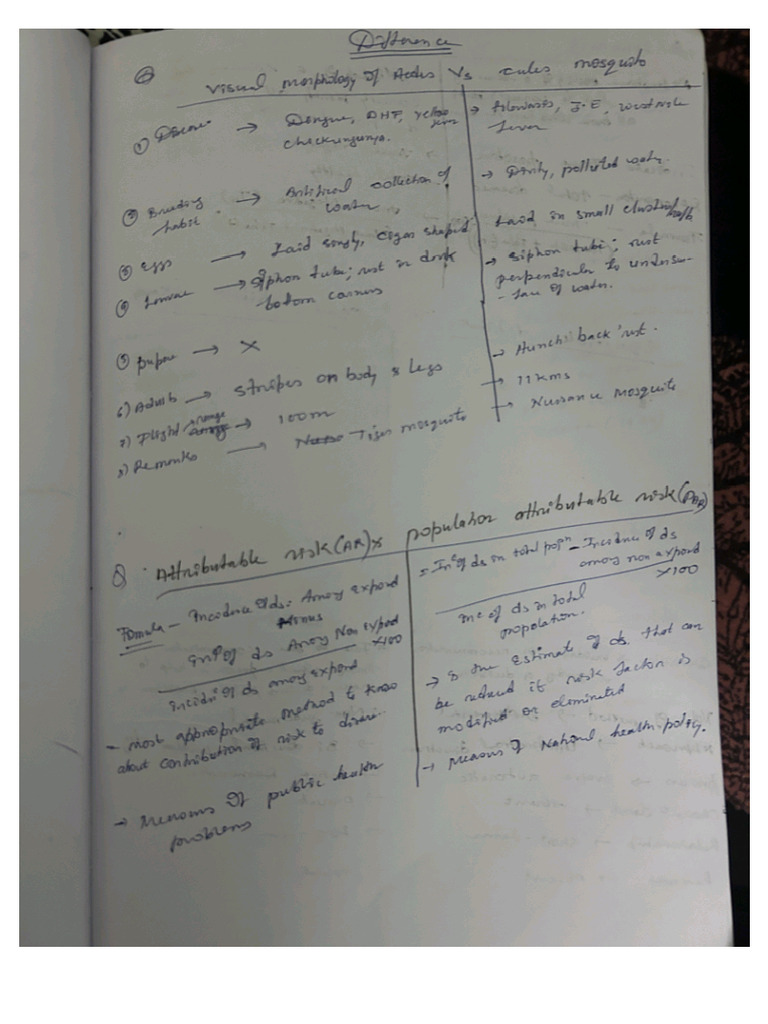 Difference
Q Visual morphology of Aedes Vs culex mosquito
① Disease → Dengue, DHF, Yellow fever
chickungunya.
→ Filariasis, J.E, westnile
fever
② Breeding habit → Artificial collection of
water,
→ Dirty, polluted water
③ Eggs → Laid singly, cigar shaped
Laid in small clusters/rafts
④ Larvae → Siphon tube; rest in dark
bottom corners
→ Siphon tube; rest
perpendicular to undersur-
-face of water.
⑤ pupae → X
6) Adults → stripes on body & legs
→ Hunch back rest.
7) Flight range → 100m
→ 11kms
8) Remarks → Tiger mosquito
→ Nuisance mosquito
Q Attributable risk(AR) x population attributable risk(PAR)
Formula - Incidence of ds. Among expord
Minus
Inc of ds Among Non Expord
x100
Incidn of ds among expord
- most appropriate method to know
about contribution of risk to disease.
→ Measures of public health
problems
= Inc of ds in total popn - Incidence of ds
among non expord
x100
inc of ds in total
population.
→ Is the Estimate of ds. that can
be reduced if risk factor is
modified or eliminated
→ Means of National health policy.